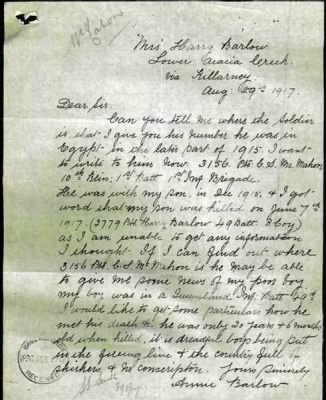 McMahon
Mrs Harry Barlow
Lower Acacia Creek
via Killarney
Aug: 29th 1917.
Dear Sir.
Can you tell me where the Soldier
is that I give you his Number he was in
Egypt in the later part of 1915. I want
to write to him Now. 3156. Pte C. S. McMahon
10th Rein: 1st Batt 1st Inf Brigade.
He was with my son, in Dec 1915. & I got
word that my son was killed on June 7th
1917. (3779 Pte Harry Barlow 49 Batt. B Coy)
as I am unable to get any information
I thought. If I can find out where
3156 Pte. C. S. McMahon is he may be able
to give me some News of my poor boy
my boy was in a Queensland Inf. Batt 49th
I would like to get some particulars how he
met his death &. he was only 20 years & 6 months
old when killed, it is dreadful boys being put
in the fireing line & the country full of
shirkers & No conscription. Yours Sincerely
Annie Barlow
RECEIVED